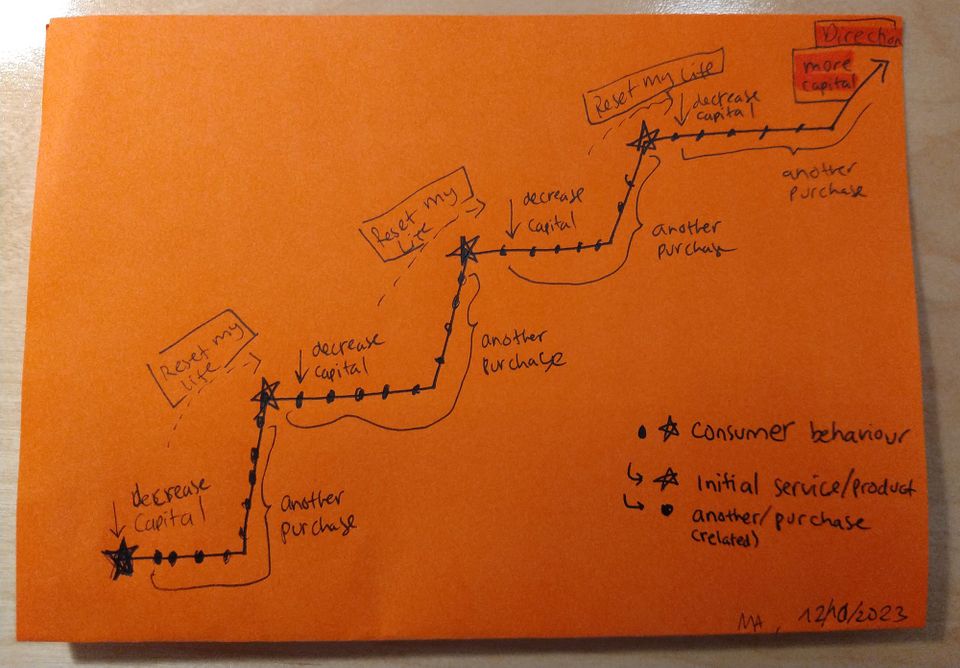 Direction
more
capital
Reset my life
decrease
capital
another
purchase
Reset my
life
decrease
capital
another
purchase
Reset my
life
decrease
capital
another
purchase
decrease
capital
another
purchase
consumer behaviour
Initial service/product
another/purchase
(related)
MA, 12/10/2023